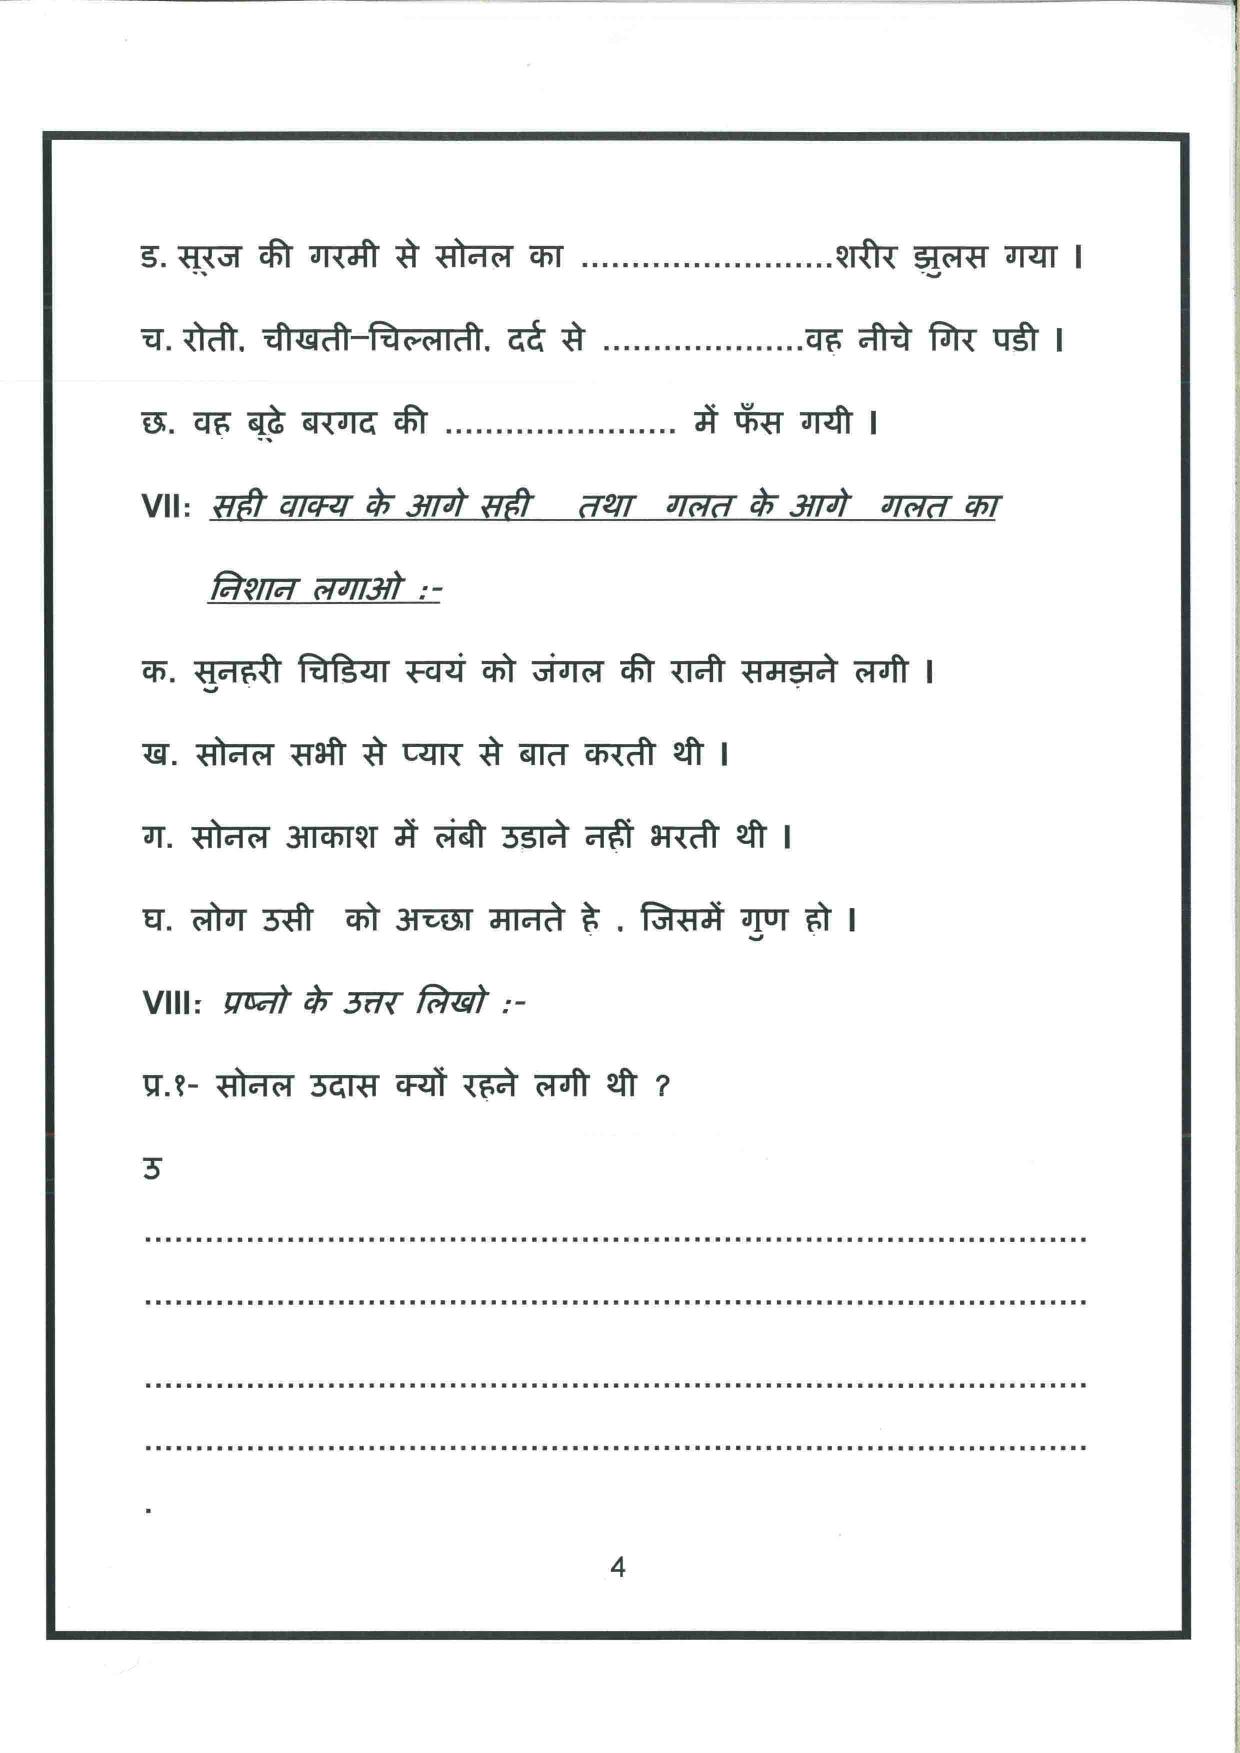 ड. सूरज की गरमी से सोनल का .........................शरीर झुलस गया ।
च. रोती. चीखती–चिल्लाती. दर्द से ....................वह नीचे गिर पडी ।
छ. वह बूढे बरगद की ....................... में फँस गयी ।
VII: सही वाक्य के आगे सही तथा गलत के आगे गलत का
निशान लगाओ :-
क. सुनहरी चिडिया स्वयं को जंगल की रानी समझने लगी ।
ख. सोनल सभी से प्यार से बात करती थी ।
ग. सोनल आकाश में लंबी उडाने नहीं भरती थी ।
घ. लोग उसी को अच्छा मानते हे . जिसमें गुण हो ।
VIII: प्रष्नो के उत्तर लिखो :-
प्र.१- सोनल उदास क्यों रहने लगी थी ?
उ
..............................................................................................
..............................................................................................
..............................................................................................
..............................................................................................
.
4